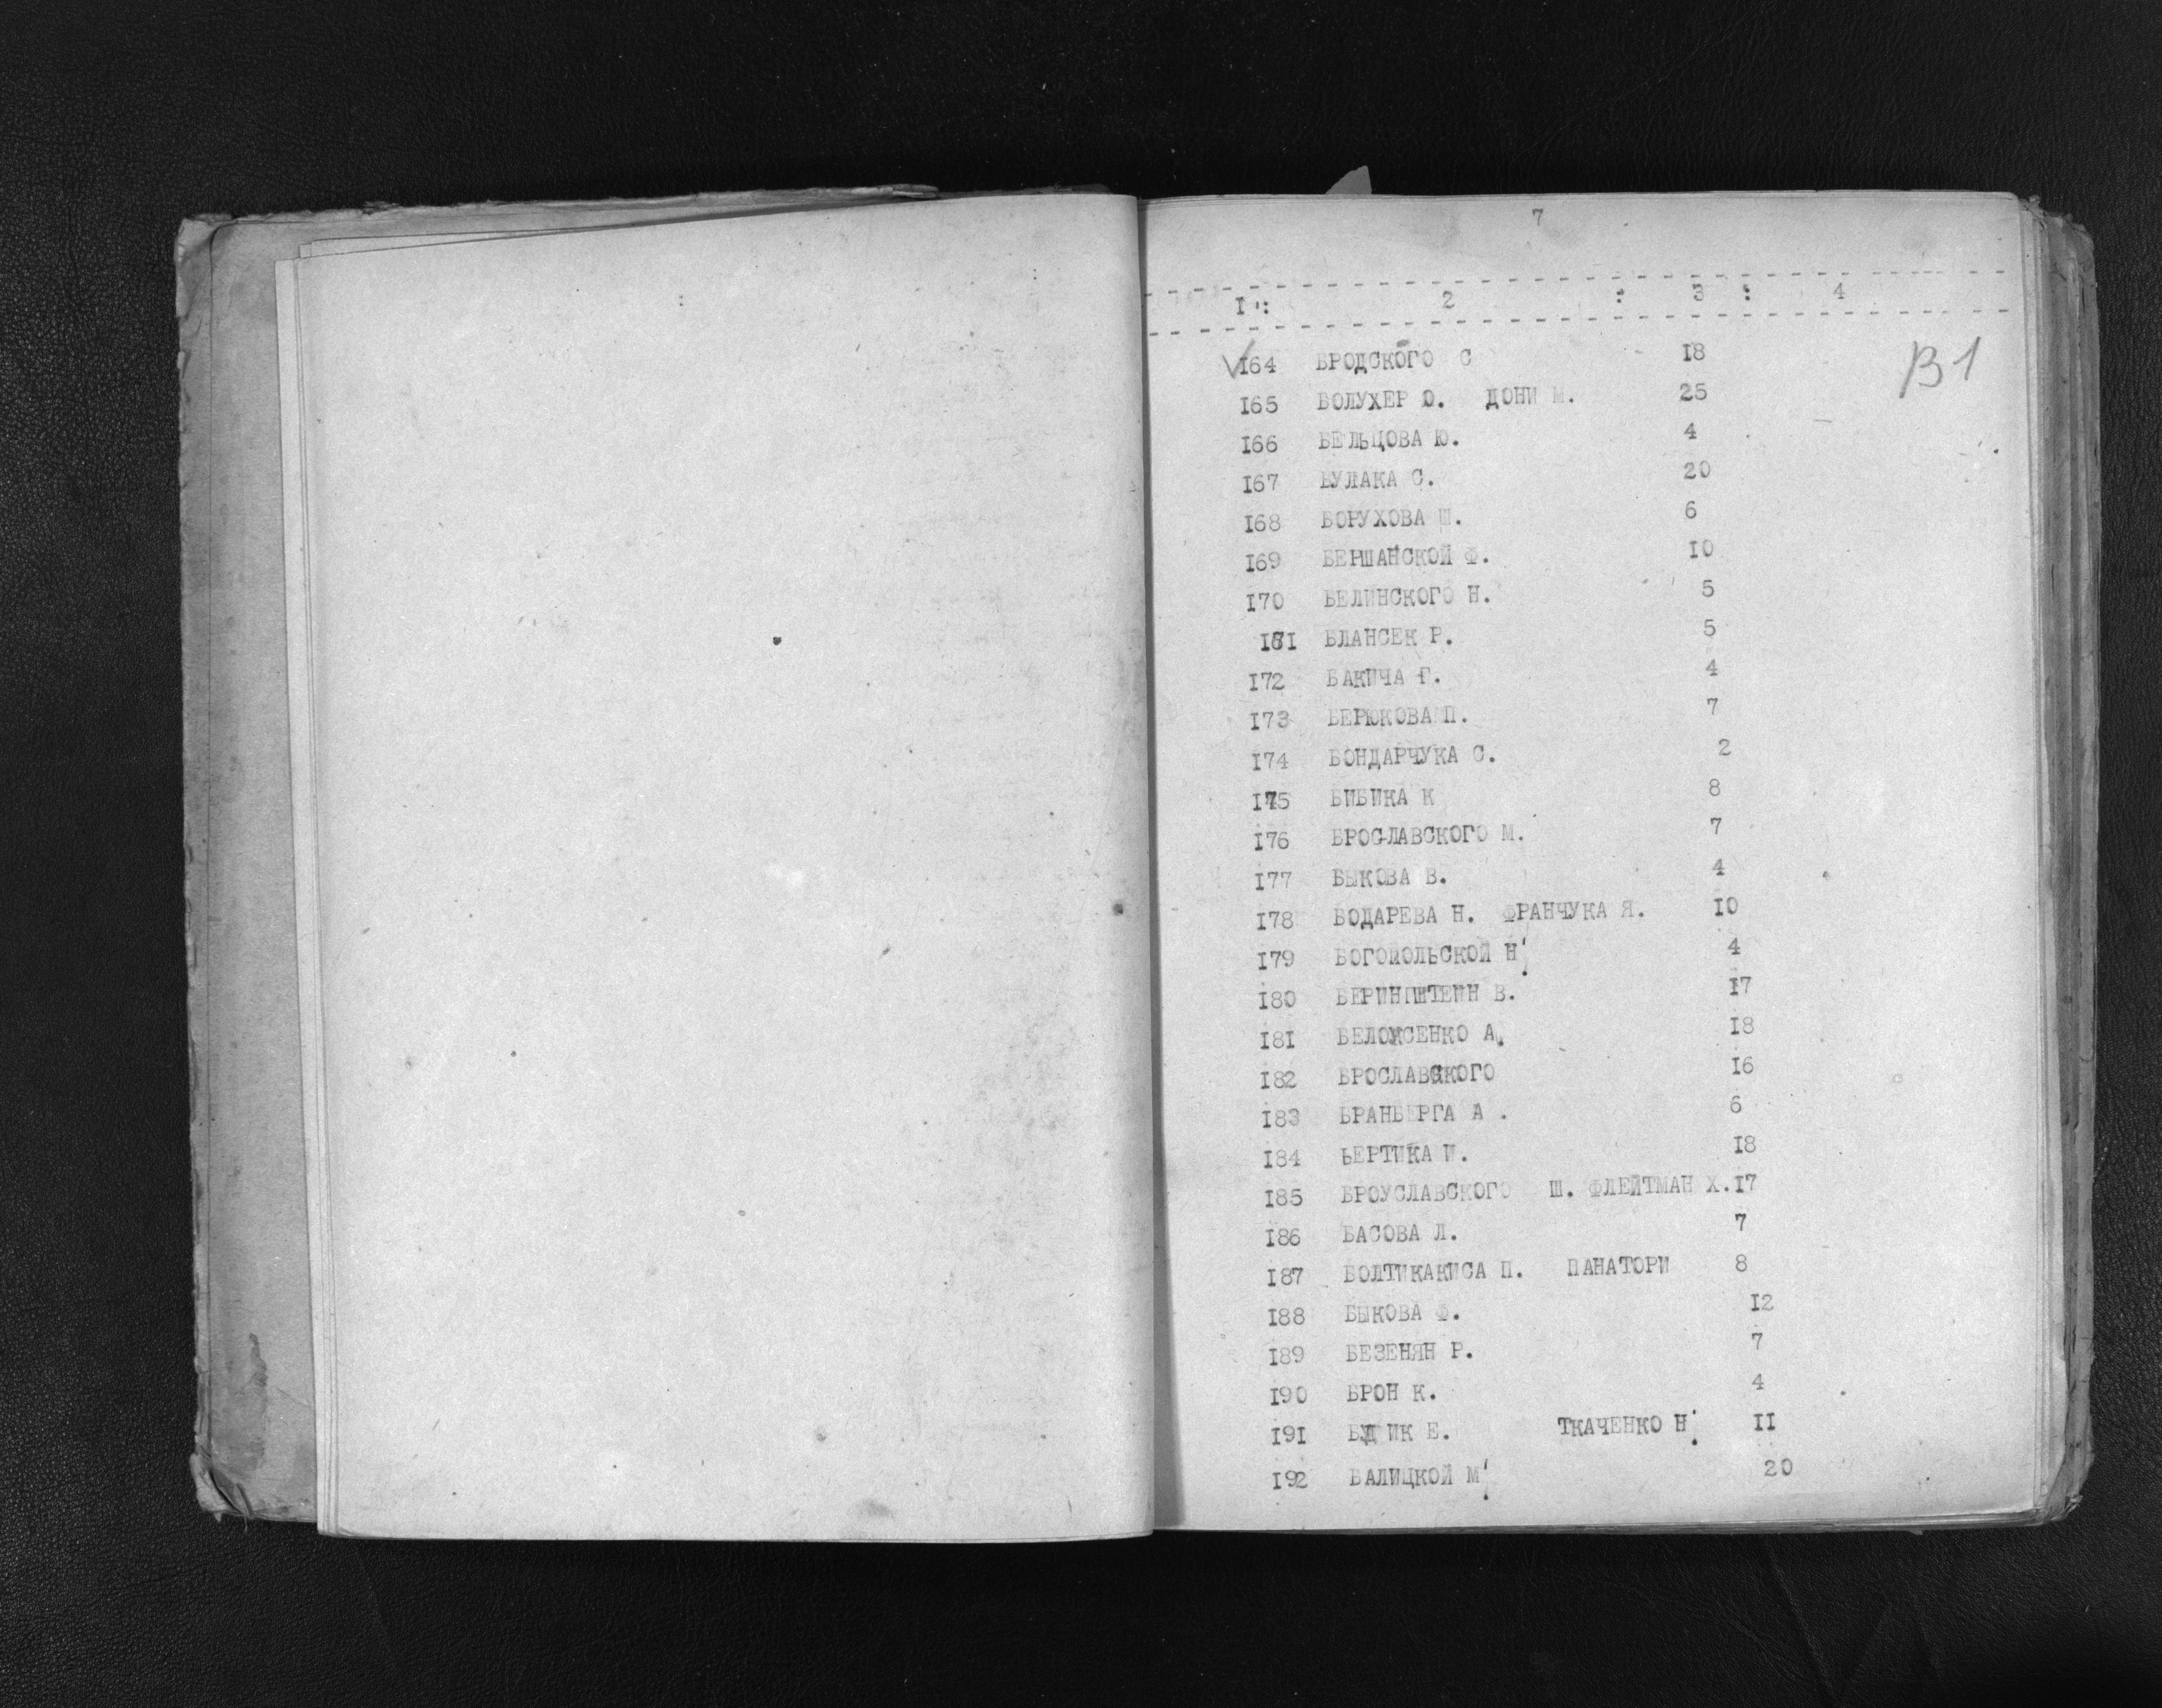 7
I : 2 : 3 : 4
I64 БРОДСКОГО С 18
В1
I65 БОЛУХЕР О. ДОНИ М. 25
I66 БЕЛЬЦОВА Ю. 4
I67 БУЛАКА С. 20
I68 БОРУХОВА Ш. 6
I69 БЕРШАНСКОЙ Ф. I0
I70 БЕЛИНСКОГО Н. 5
БЛАНСЕК Р. 5
I72 БАКИЧА Г. 4
I73 БЕРЮКОВА П. 7
I74 БОНДАРЧУКА С. 2
I75 БИБИКА К 8
I76 БРОСЛАВСКОГО М. 7
I77 БЫКОВА В. 4
I78 БОДАРЕВА Н. ФРАНЧУКА Я. I0
I79 БОГОМОЛЬСКОЙ Н. 4
I80 БЕРИНШТЕИН В. I7
I81 А. I8
I82 БРОСЛАВСКОГО I6
I83 БРАНБЕРГА А . 6
I84 БЕРТИКА И. I8
I85 БРОУСЛАВСКОГО Ш. ФЛЕЙТМАН Х. I7
I86 БАСОВА Л. 7
I87 БОЛТИКАКИСА П. ПАНАТОРИ 8
I88 БЫКОВА Ф. I2
I89 БЕЗЕНЯН Р. 7
I90 БРОН К. 4
I91 Е. ТКАЧЕНКО Н. II
I92 БАЛИЦКОЙ М. 20